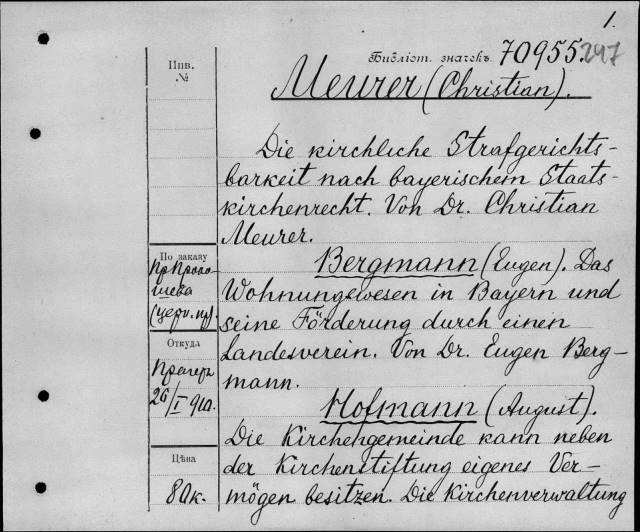 1.
Библіот. значекъ 70955.247
Инв.
№
Meurer (Christian).
Die kirchliche Strafgerichts-
barkeit nach bayerischem Staats-
kirchenrecht. Von Dr. Christian
Meurer.
По заказу
(церк. пр).
Bergmann (Eugen). Das
Wohnungswesen in Bayern und
seine Förderung durch einen
Landesverein. Von Dr. Eugen Berg-
mann.
Откуда
Прагеръ
26/I 910.
Hofmann (August).
Die Kirchengemeinde kann neben
der Kirchenstiftung eigenes Ver-
mögen besitzen. Die Kirchenverwaltung
Цѣна
80к.